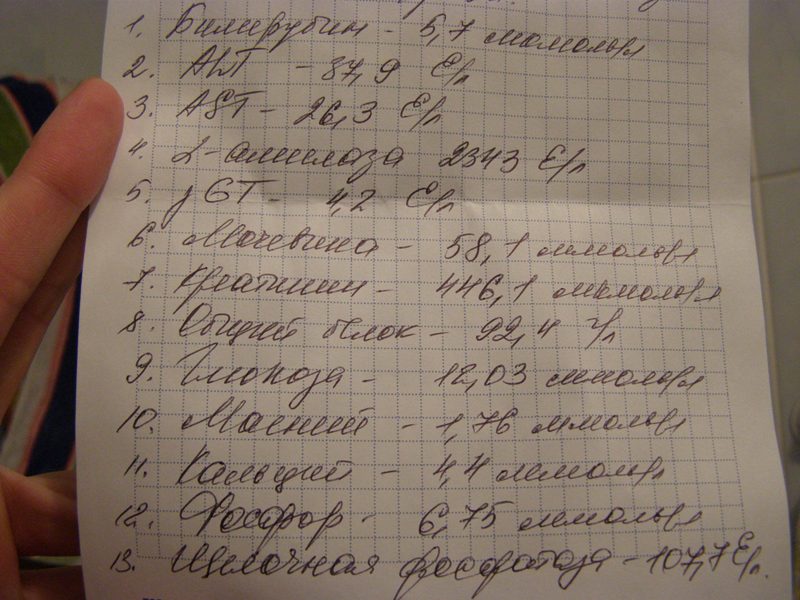 1. Билирубин - 5,7 мкмоль/л
2. АЛТ - 37,9 Е/л
3. AST - 26,3 Е/л
4. α-амилаза 2343 Е/л
5. γGT - 4,2 Е/л
6. Мочевина - 58,1 ммоль/л
7. Креатинин - 446,1 мкмоль/л
8. Общий белок - 92,4 г/л
9. Глюкоза - 12,03 ммоль/л
10. Магний - 1,76 ммоль/л
11. Кальций - 4,4 ммоль/л
12. Фосфор - 6,75 ммоль/л
13. Щелочная фосфатаза - 107,7 Е/л.